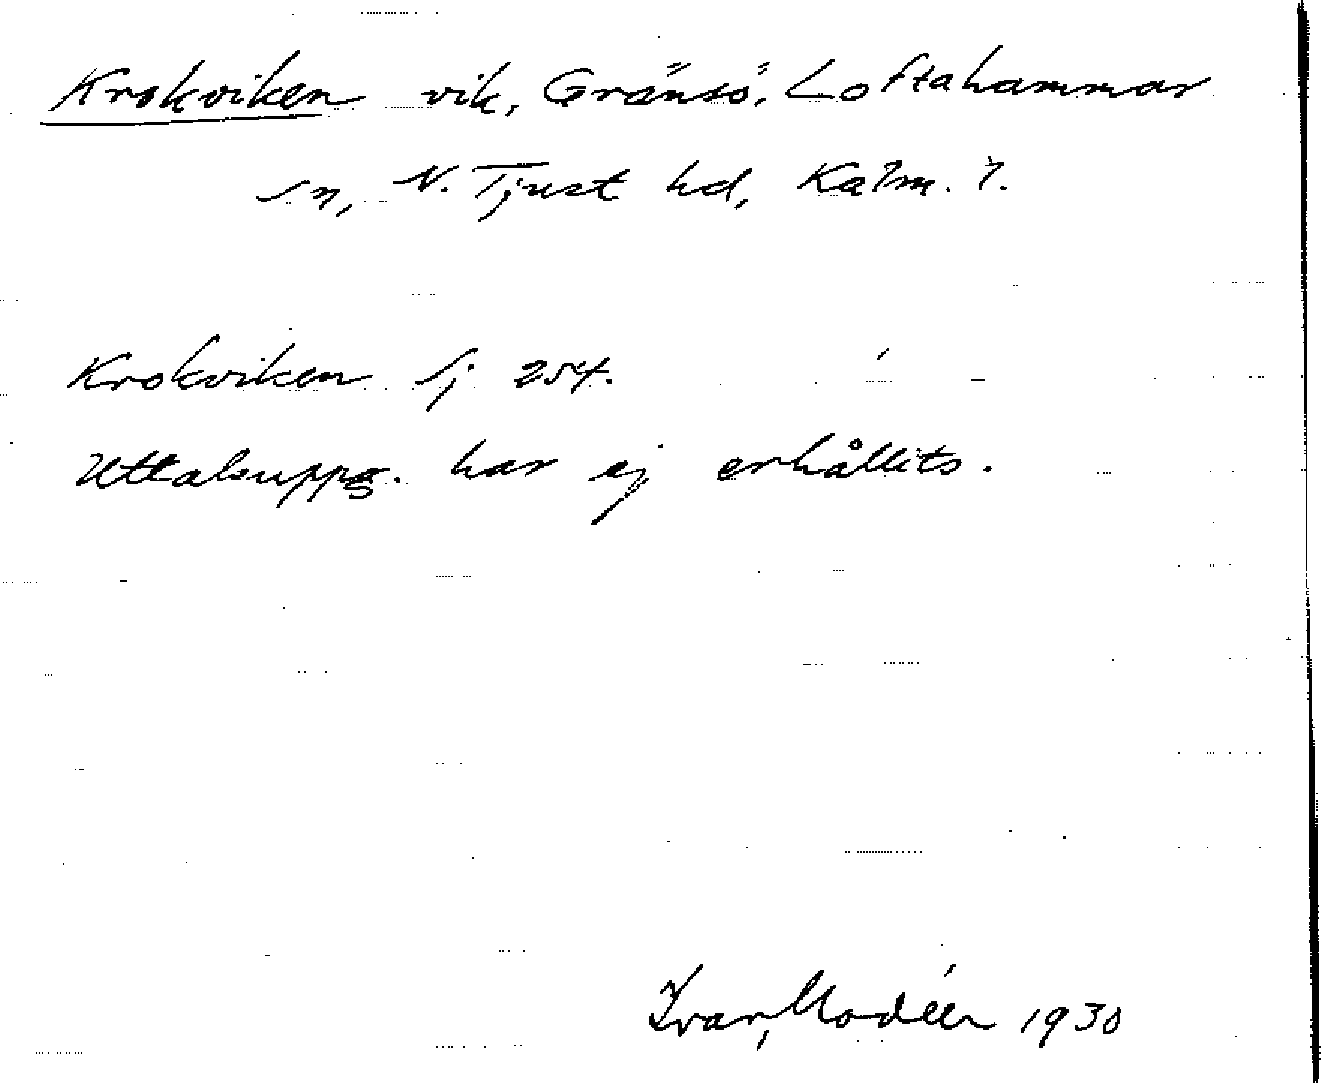 Krokviken vik, Gränsö, Loftahammar
sn, N. Tjust hd, Kalm. l.
Krokviken Sj. 254.
Uttalsuppg. har ej erhållits.
Ivar Modéer 1930